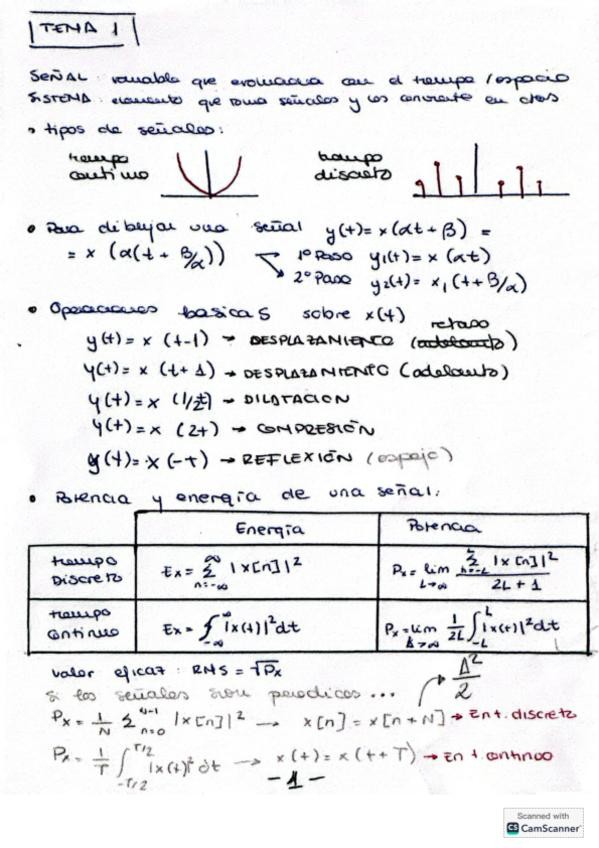 TEMA 1
SEÑAL: variable que evoluciona con el tiempo / espacio
SISTEMA: elemento que toma señales y los convierte en otros
• tipos de señales:
tiempo continuo
tiempo discreto
• Para dibujar una señal y(t) = x(αt + β) =
= x (α(t + β/α))
1º Paso y₁(t) = x(αt)
2º Paso y₂(t) = x₁(t + β/α)
• Operaciones basicas sobre x(t)
y(t) = x (t-1) → DESPLAZAMIENTO (retaso)
y(t) = x (t+1) → DESPLAZAMIENTO (adelanto)
y(t) = x (1/2t) → DILATACION
y(t) = x (2t) → COMPRESIÓN
y(t) = x (-t) → REFLEXIÓN (espejo)
• Potencia y energía de una señal:
Energía Potencia
tiempo Discreto Ex = ∞Σn=-∞ |x[n]|² Px = lim L→∞ Σn=-L |x[n]|² / 2L + 1
tiempo Continuo Ex = ∫-∞^∞ |x(t)|² dt Px = lim →∞ 1/2L ∫-L^L |x(t)|² dt
valor eficaz: RMS = √Px
A²/2
si las señales son periodicas ...
Px = 1/N Σn=0 |x[n]|² → x[n] = x[n + N] → En t. discreto
Px = 1/T ∫-T/2^T/2 |x(t)|² dt → x(t) = x(t + T) → En t. continuo
-1-
Scanned with
CS CamScanner